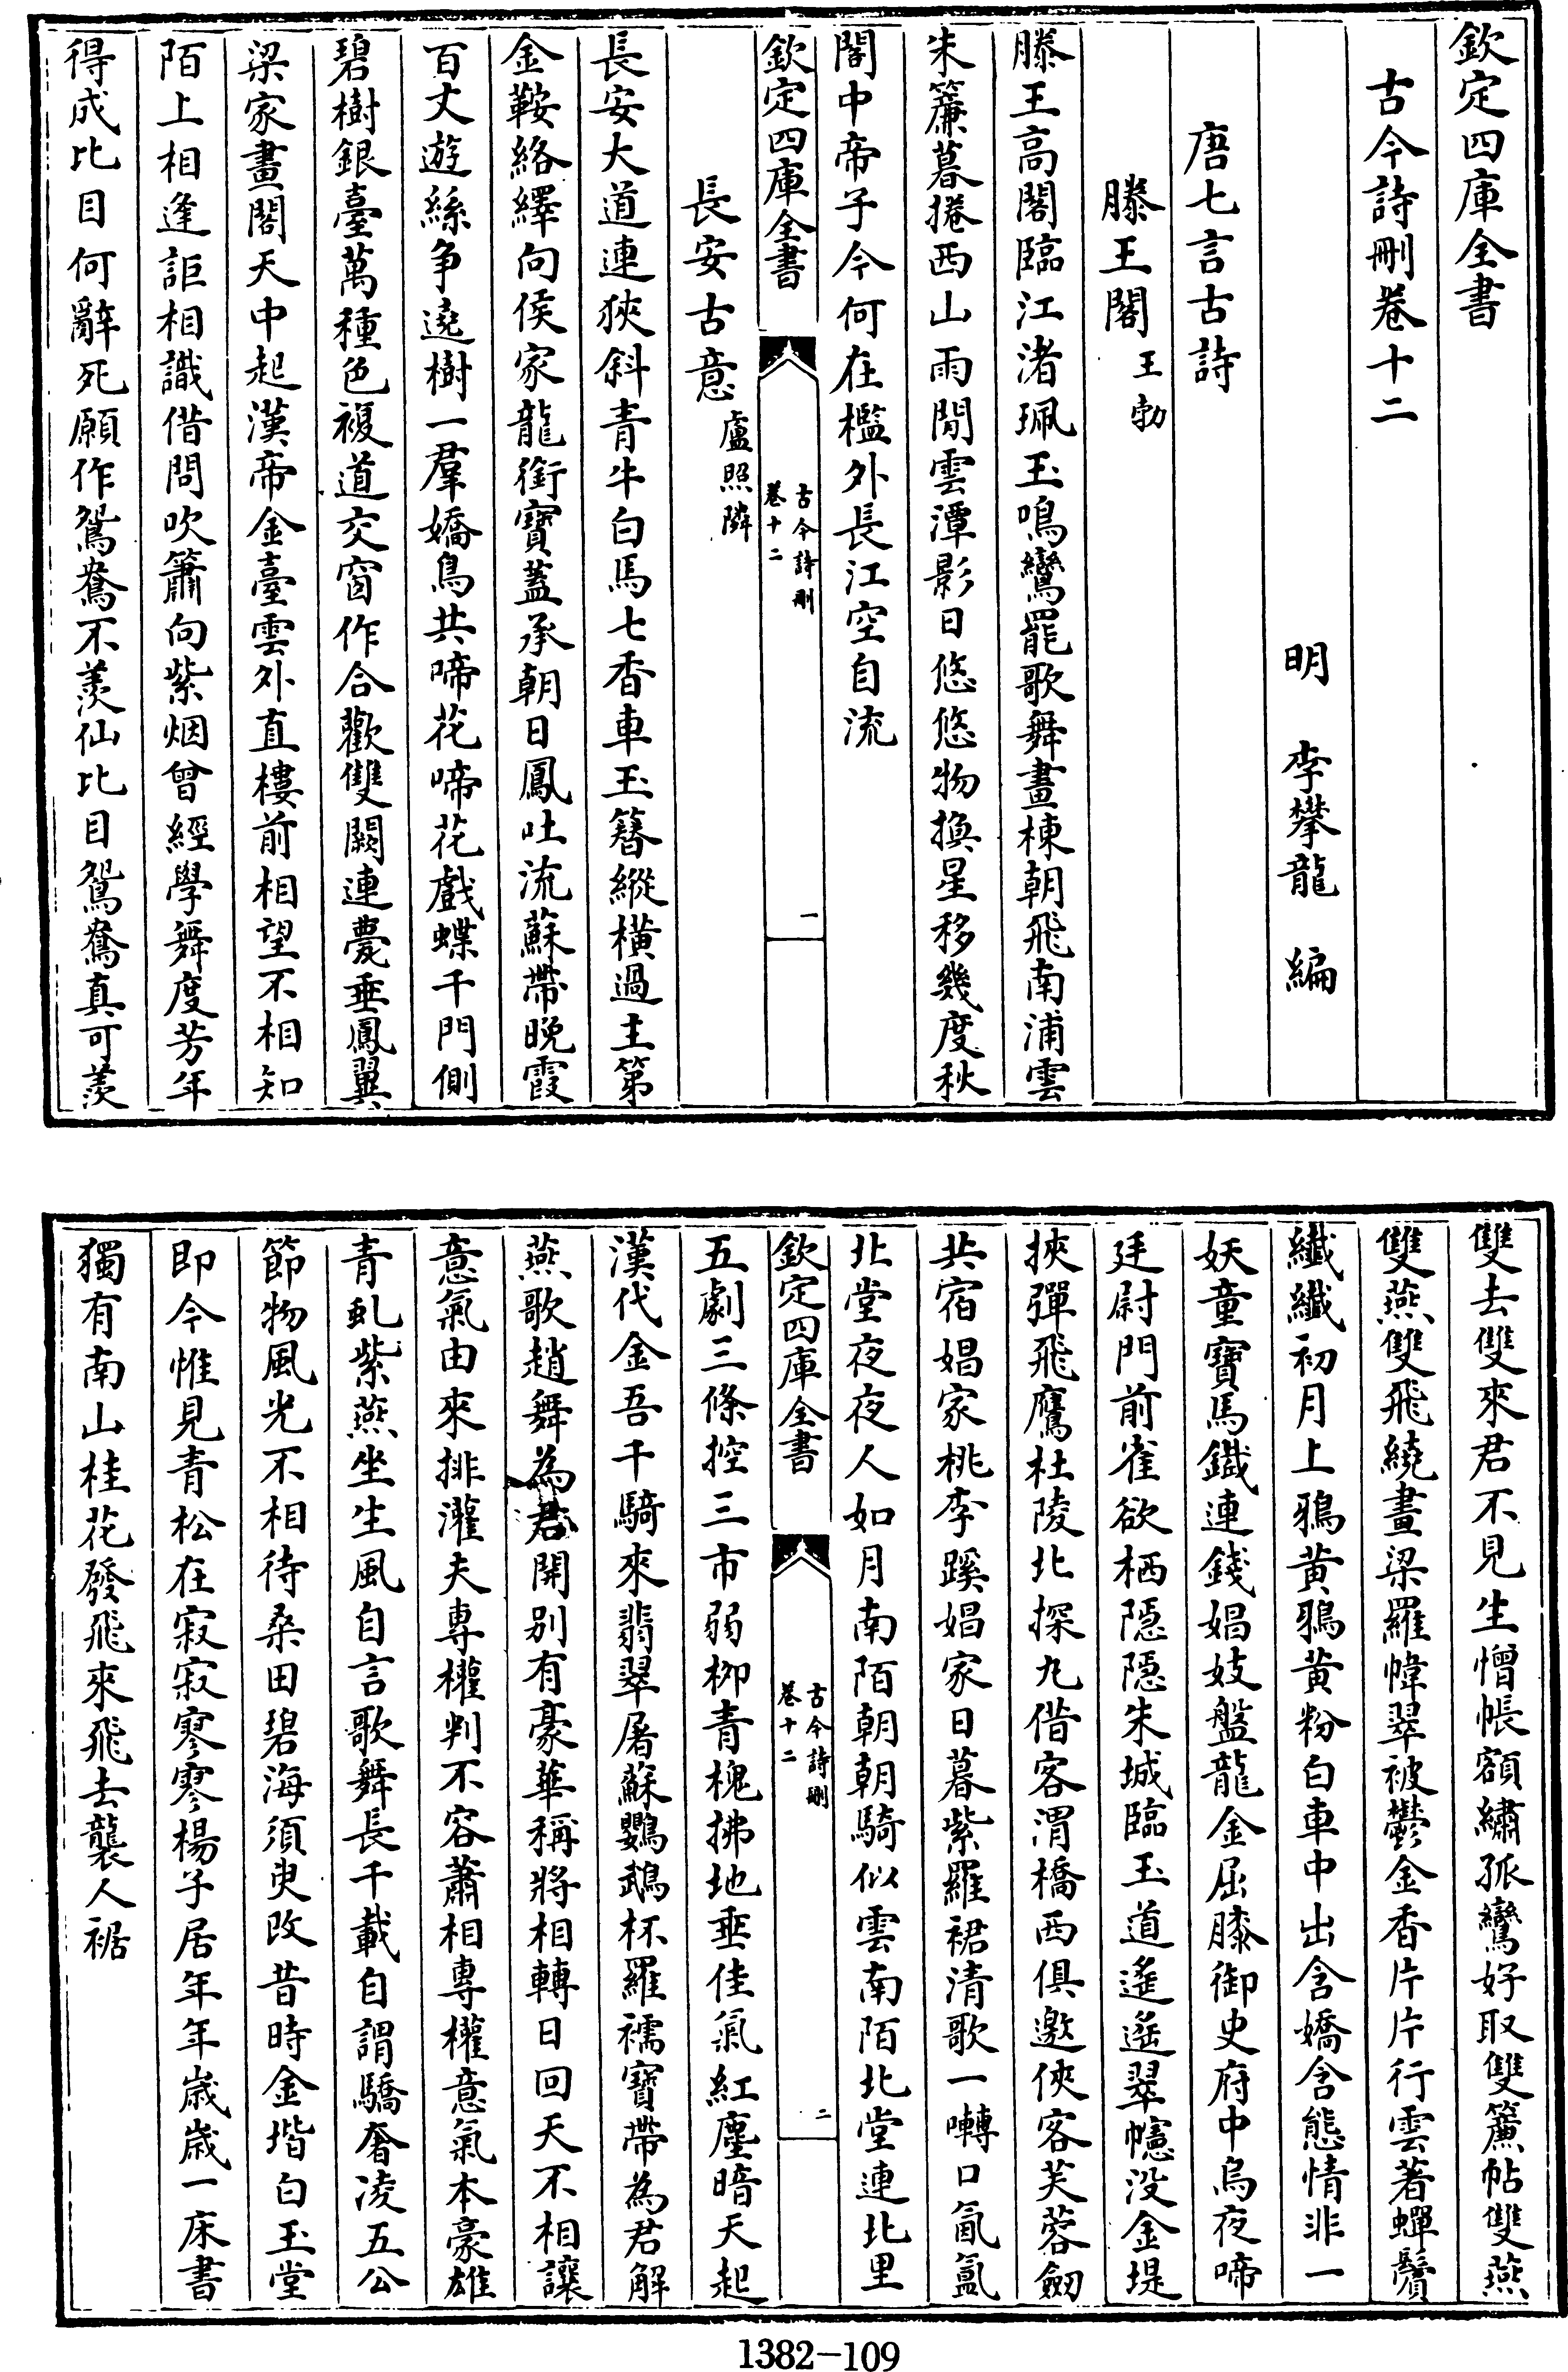 欽定四庫全書
古今詩刪卷十二
明　李攀龍　編
唐七言古詩
滕王閣 王勃
滕王高閣臨江渚珮玉鳴鸞罷歌舞畫棟朝飛南浦雲
朱簾暮捲西山雨閒雲潭影日悠悠物換星移幾度秋
閣中帝子今何在檻外長江空自流
欽定四庫全書
古今詩刪
卷十二
一
長安古意 盧照隣
長安大道連狹斜青牛白馬七香車玉簪縱橫過主第
金鞍絡繹向侯家龍銜寶蓋承朝日鳳吐流蘇帶晚霞
百丈遊絲争遶樹一羣嬌鳥共啼花啼花戲蝶千門側
碧樹銀臺萬種色複道交窗作合歡雙闕連甍垂鳳翼
梁家畫閣天中起漢帝金臺雲外直樓前相望不相知
陌上相逢詎相識借問吹簫向紫烟曾經學舞度芳年
得成比目何辭死願作鴛鴦不羨仙比目鴛鴦真可羨
雙去雙來君不見生憎帳額繡孤鸞好取雙簾帖雙燕
雙燕雙飛繞畫梁羅幃翠被鬱金香片片行雲著蟬鬢
纖纖初月上鴉黄鴉黄粉白車中出含嬌含態情非一
妖童寶馬鐵連錢娼妓盤龍金屈膝御史府中烏夜啼
廷尉門前雀欲栖隱隱朱城臨玉道遙遙翠幰没金堤
挾彈飛鷹杜陵北探丸借客渭橋西俱邀俠客芙蓉劒
共宿娼家桃李蹊娼家日暮紫羅裙清歌一囀口氤氲
北堂夜夜人如月南陌朝朝騎似雲南陌北堂連北里
欽定四庫全書
古今詩刪
卷十二
二
五劇三條控三市弱柳青槐拂地垂佳氣紅塵暗天起
漢代金吾千騎來翡翠屠蘇鸚鵡杯羅襦寶帶為君解
燕歌趙舞為君開別有豪華稱將相轉日回天不相讓
意氣由來排灌夫專權判不容蕭相專權意氣本豪雄
青虬紫燕坐生風自言歌舞長千載自謂驕奢凌五公
節物風光不相待桑田碧海須臾改昔時金堦白玉堂
即今惟見青松在寂寂寥寥楊子居年年歲歲一床書
獨有南山桂花發飛來飛去襲人裾
1382-109